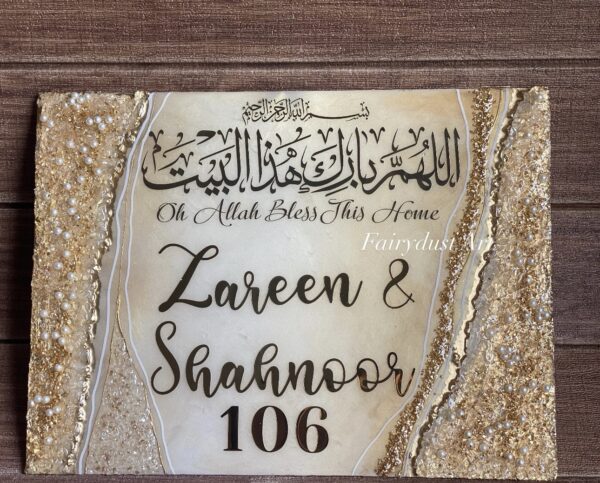 بسم الله الرحمن الرحيم
اللهم بارك هذا البيت
Oh Allah Bless This Home
Fairydust Art
Zareen &
Shahnoor
106